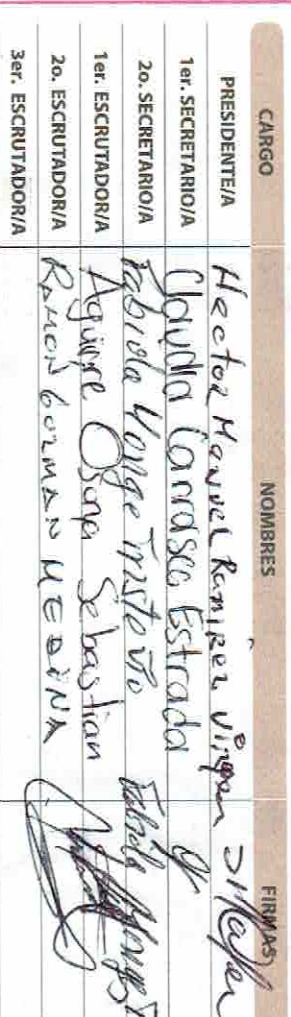 CARGO NOMBRES FIRMAS
PRESIDENTE/A Hector Manuel Ramirez
1er. SECRETARIO/A Claudia Carrasco Estrada
2o. SECRETARIO/A Fabiola Monge Fabiola Monge
1er. ESCRUTADOR/A Aguirre Osuna Sebastian
2o. ESCRUTADOR/A RAMON GUZMAN MEDINA
3er. ESCRUTADOR/A